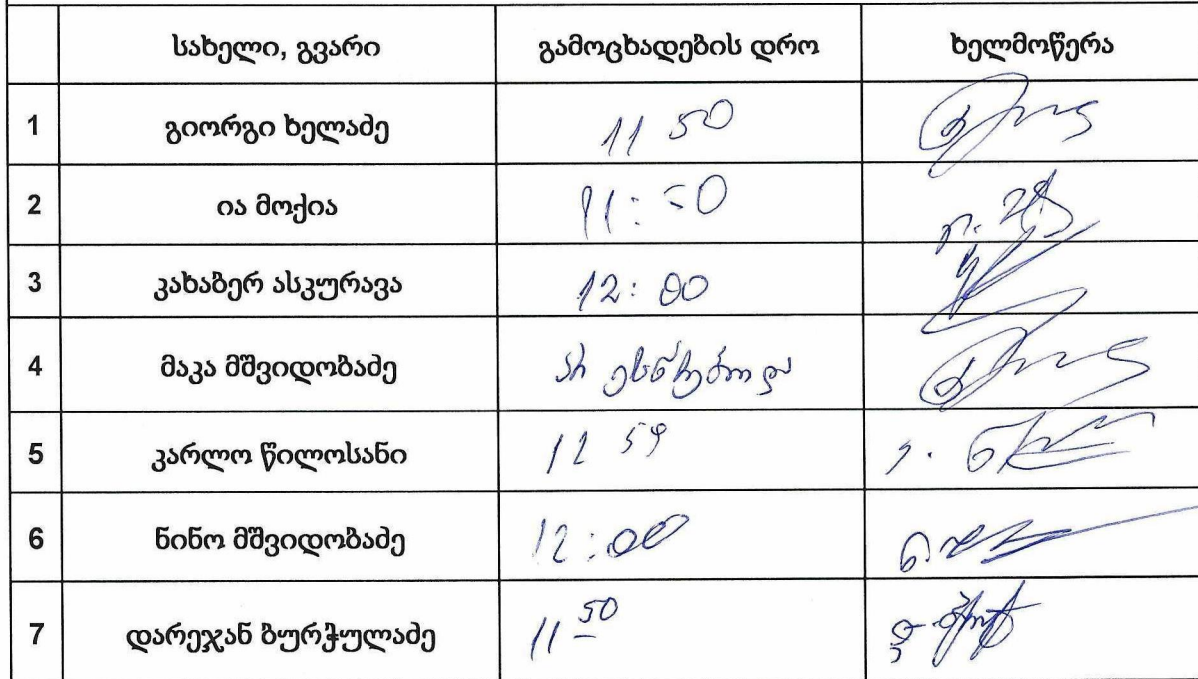 სახელი, გვარი გამოცხადების დრო ხელმოწერა
1 გიორგი ხელაძე 11 50
2 ია მოქია 11:50
3 კახაბერ ასკურავა 12:00
4 მაკა მშვიდობაძე არ ესწრებოდა
5 კარლო წილოსანი 12 59
6 ნინო მშვიდობაძე 12:00
7 დარეჯან ბურჭულაძე 11 50